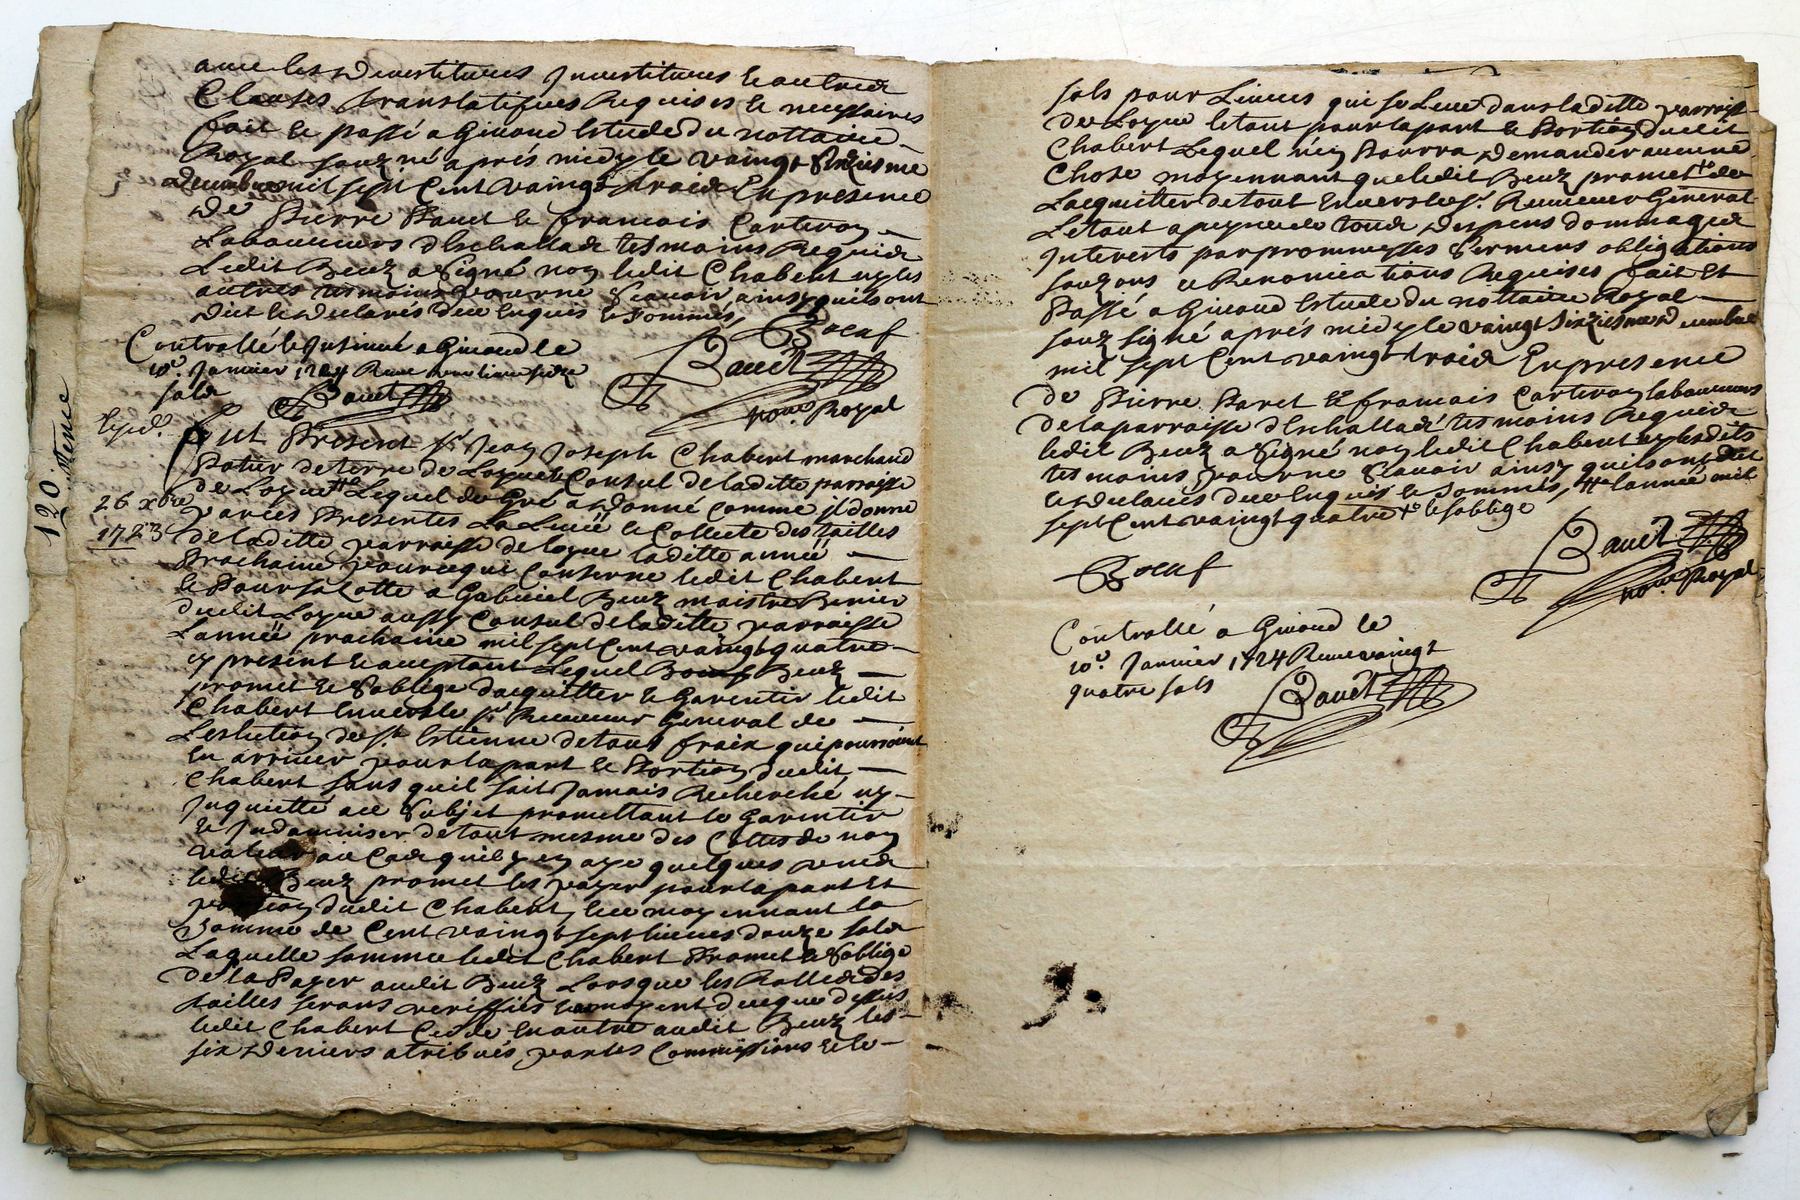 avec les devestitures Investitures & autres
Clauses translatifves Requises & necessaires
fait & passé a Givord Estude du nottaire
Royal souzné après midy le vaingt Sixiesme
decembre mil sept Cent vaingt trois En presence
de Pierre Paret & francois Carteron
Laboureurs d'Eschallas tesmoins Requis
Ledit Beuf a Signé non ledit Chabert ny les
autres tesmoins pour ne Scavoir ainsy quils ont
dict & declarés de ce Enquis & Sommés,
Boeuf
Controllé & Insinué a Givord le
10e. Janvier 1724 Receu
sols
Bauet
Bauet
nore. Royal
Exped.
120
26 xbre
1723
fut Present sr. Jean Joseph Chabert marchand
Potier de terre de Loyre & Consul de laditte parroisse
de Loyre Lequel de Gré a donné comme il donne
par ces Presentes La Leuée & Collecte des tailles
de laditte parroisse de loyre laditte année
Prochaine pour ce qui Conserne ledit Chabert
& Pour sa Cotte a Gabriel Beuf maistre
dudit Loyre aussy Consul de laditte parroisse
Lannée prochaine mil sept Cent vaingt quatre
cy present & aceptant Lequel Beuf
promet & S'oblige d'acquitter & Garentir ledit
Chabert Envers le sr. Receveur General de
Leslection de st. Estienne de tous fraix qui pourroient
En arriver pour la part & Portion dudit
Chabert sans quil soit Jamais Recherché ny
Inquietté a ce Subjet promettant le Garentir
& Indamniser de tout mesme des Cottes de non
valeur au Cas quil y en aye quelques unes
ledit Beuf promet les payer pour la part Et
portion dudit Chabert, & ce moyennant la
Somme de Cent vaingt sept livres douze sols
Laquelle somme ledit Chabert Promet & S'oblige
de la Payer audit Beuf Lorsque les Rolles des
tailles serons veriffiés & moyent ce que dessus
ledit Chabert Cedde En outre audit Beuf les
six deniers atribués, par les Commissions & le
sols pour Livres qui se Leve dans laditte parroisse
de Loyre le tout pour la part & Portion dudit
Chabert Lequel n'en Pourra demander aucune
Chose moyennant que ledit Beuf promet de
Lacquitter de tout Envers le sr. Receveur General
Le tout a peyne de tous despens dommages
Interets par prommesses Sermens obligations
souz ons & Renonciations Requises fait Et
Passé a Givord Estude du nottaire Royal
souz signé après midy le vaingt Sixiesme decembre
mil sept Cent vaingt trois En presence
de Pierre Paret & francois Carteron laboureurs
de la parroisse d'Eschallas tesmoins Requis
ledit Beuf a Signé non ledit Chabert ny lesdits
tesmoins, pour ne Scavoir ainsy quils ont dit
& declarés de ce Enquis & Sommés, lannée mil
sept Cent vaingt quatre & s'oblige
Boeuf
Bauet
nore. Royal
Controllé a Givord le
10e. Janvier 1724 Receu vaingt
quatre sols
Bauet